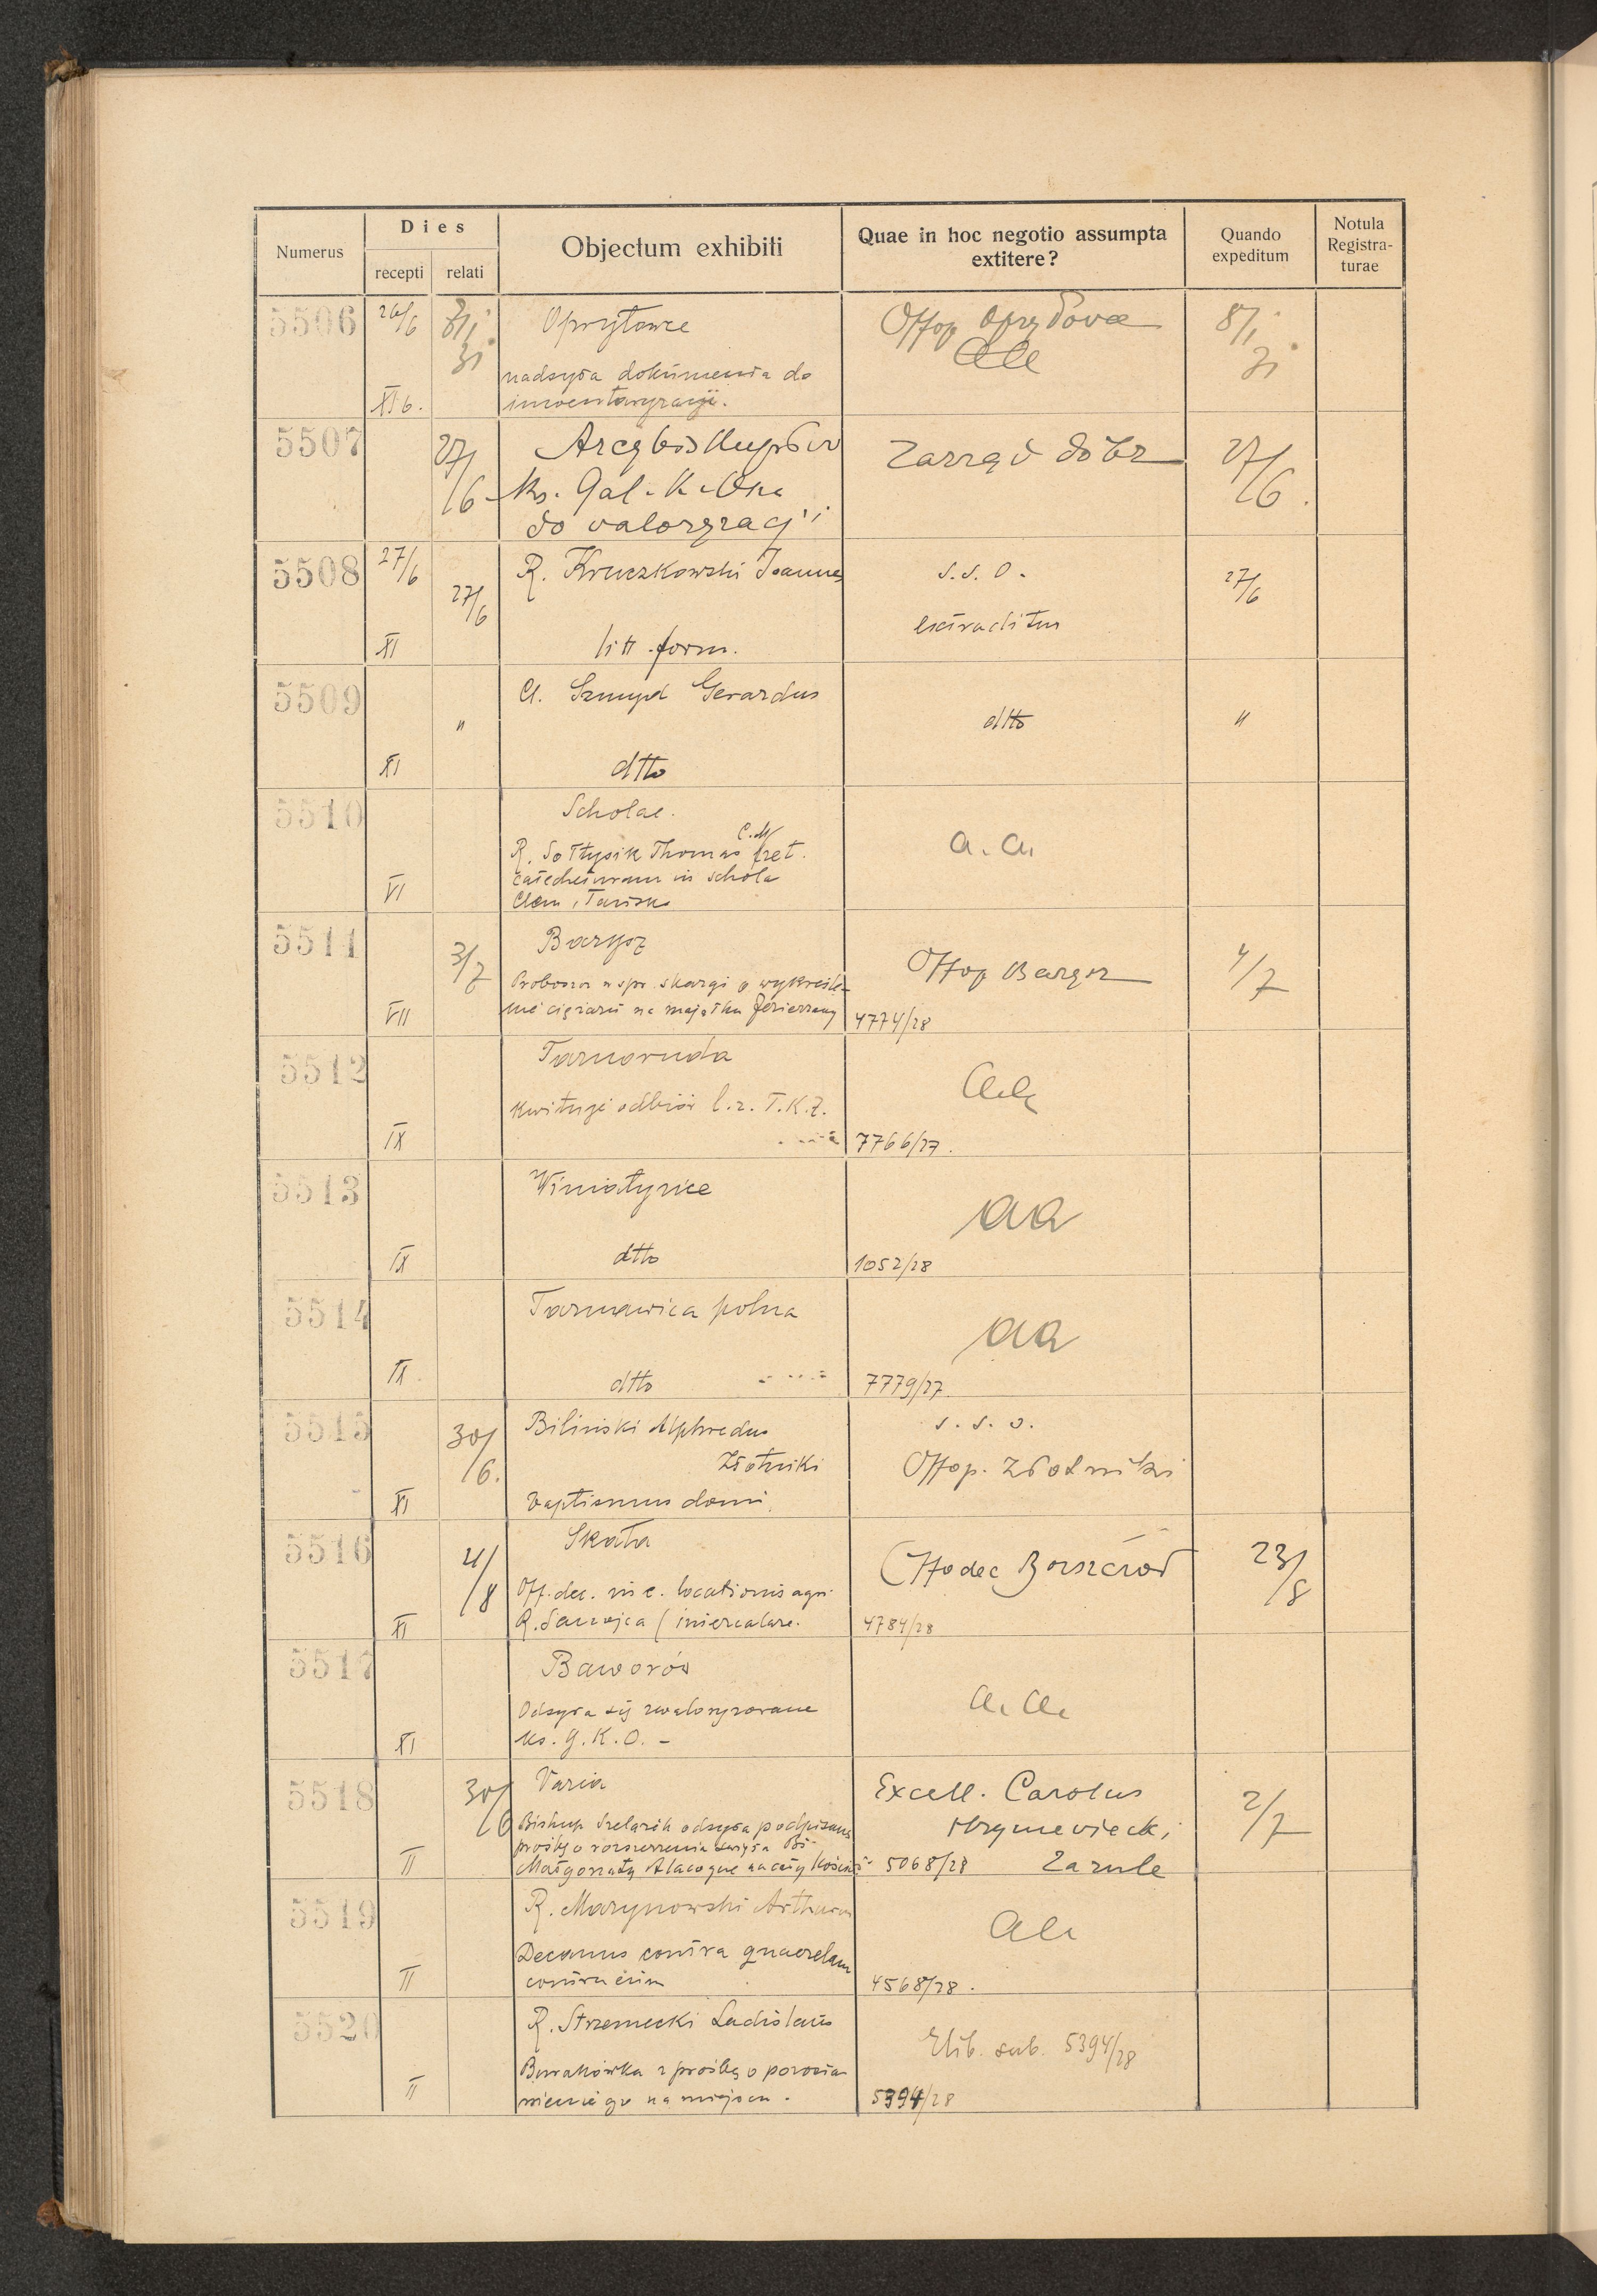 Numerus
Dies
recepti
relati
Objectum exhibiti
Quae in hoc negotio assumpta
extitere?
Quando
expeditum
Notula
Registra-
turae
5506
26/6
8/i
31
Opryłowce
Offop
8/i
31
nadsyła dokumenta do
XI b.
inwentaryzacji.
5507
27/6
Arcybiskupów
ks. Gal. K. Osz
do waloryzacji
Zarząd dóbr
27/6.
5508
27/6
27/6
R. Kruczkowski Joannes
s. s. o.
27/6
extraditur
XI
litt. form.
5509
"
Cl. Szmyd Gerardus
dtto
"
XI
dtto
5510
Scholae.
C.M
R. Sołtysik Thomas pet.
a. a.
catecheturam in schola
VI
5511
3/7
Barysz
Offop Barysz
4/7
Proboszcz w spr. skargi o wykreśle-
VII
nie ciężaru na majątku Jezierzany
4774/28
5512
Tarnoruda
a.a.
kwituje odbiór l. z. T.K.Z.
IX
7766/27.
5513
Winiatyńce
aa
IX
dtto
1052/28
5514
Tarnawica polna
aa
IX
dtto
7779/27
5515
30/6.
Biliński Alphredus
s. s. o.
Złotniki
Offop. Złotniki
XI
baptismus domi.
5516
4/8
Skała
Off dec Borszczów
23/8
Off. dec. in c. locationis agri
XI
4784/28
5517
Baworów
a. a.
Odsyła się zwaloryzowane
XI
ks. G. K. O. -
5518
30/6
Varia
Excell. Carolus
2/7
Biskup Szelążek odsyła podpisaną
Hryniewiecki
prośbę o rozszerzenie święta Bł.
II
Małgorzaty Alacoque na cały Kościół
5068/28
5519
R. Marynowski Arthurus
aa
Decanus contra quaerelam
II
contra eum
4568/28.
5520
R. Strzemecki Ladislaus
Exib. sub. 5394/28
Burakówka z prośbą o pozosta-
II
wienie go na miejscu.
5394/28